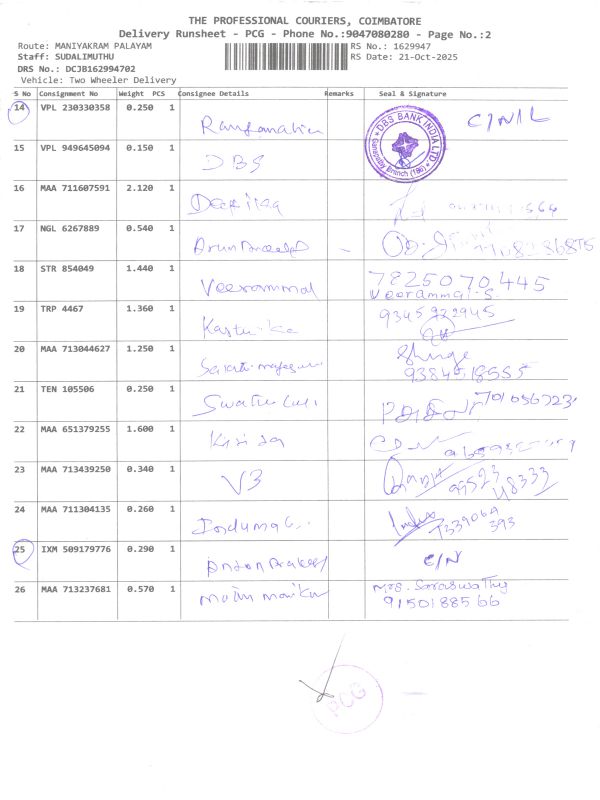 THE PROFESSIONAL COURIERS, COIMBATORE
Delivery Runsheet - PCG - Phone No.:9047080280 - Page No.:2
Route: MANIYAKRAM PALAYAM
RS No.: 1629947
Staff: SUDALIMUTHU
RS Date: 21-Oct-2025
DRS No.: DCJB162994702
Vehicle: Two Wheeler Delivery
S No Consignment No Weight PCS Consignee Details Remarks Seal & Signature
14 VPL 230330358 0.250 1
DBS BANK INDIA LTD
15 VPL 949645094 0.150 1 DBS
16 MAA 711607591 2.120 1 Deepika
17 NGL 6267889 0.540 1 -
18 STR 854049 1.440 1 Veerammal 7825070445
Veerammal.S
19 TRP 4467 1.360 1 9345922945
20 MAA 713044627 1.250 1
9384518555
21 TEN 105506 0.250 1
22 MAA 651379255 1.600 1
23 MAA 713439250 0.340 1 V3 99523
48333
24 MAA 711304135 0.260 1 Indu 7339069
393
25 IXM 509179776 0.290 1 C/N
26 MAA 713237681 0.570 1 Mrs. Saraswathy
9150188566
PCG